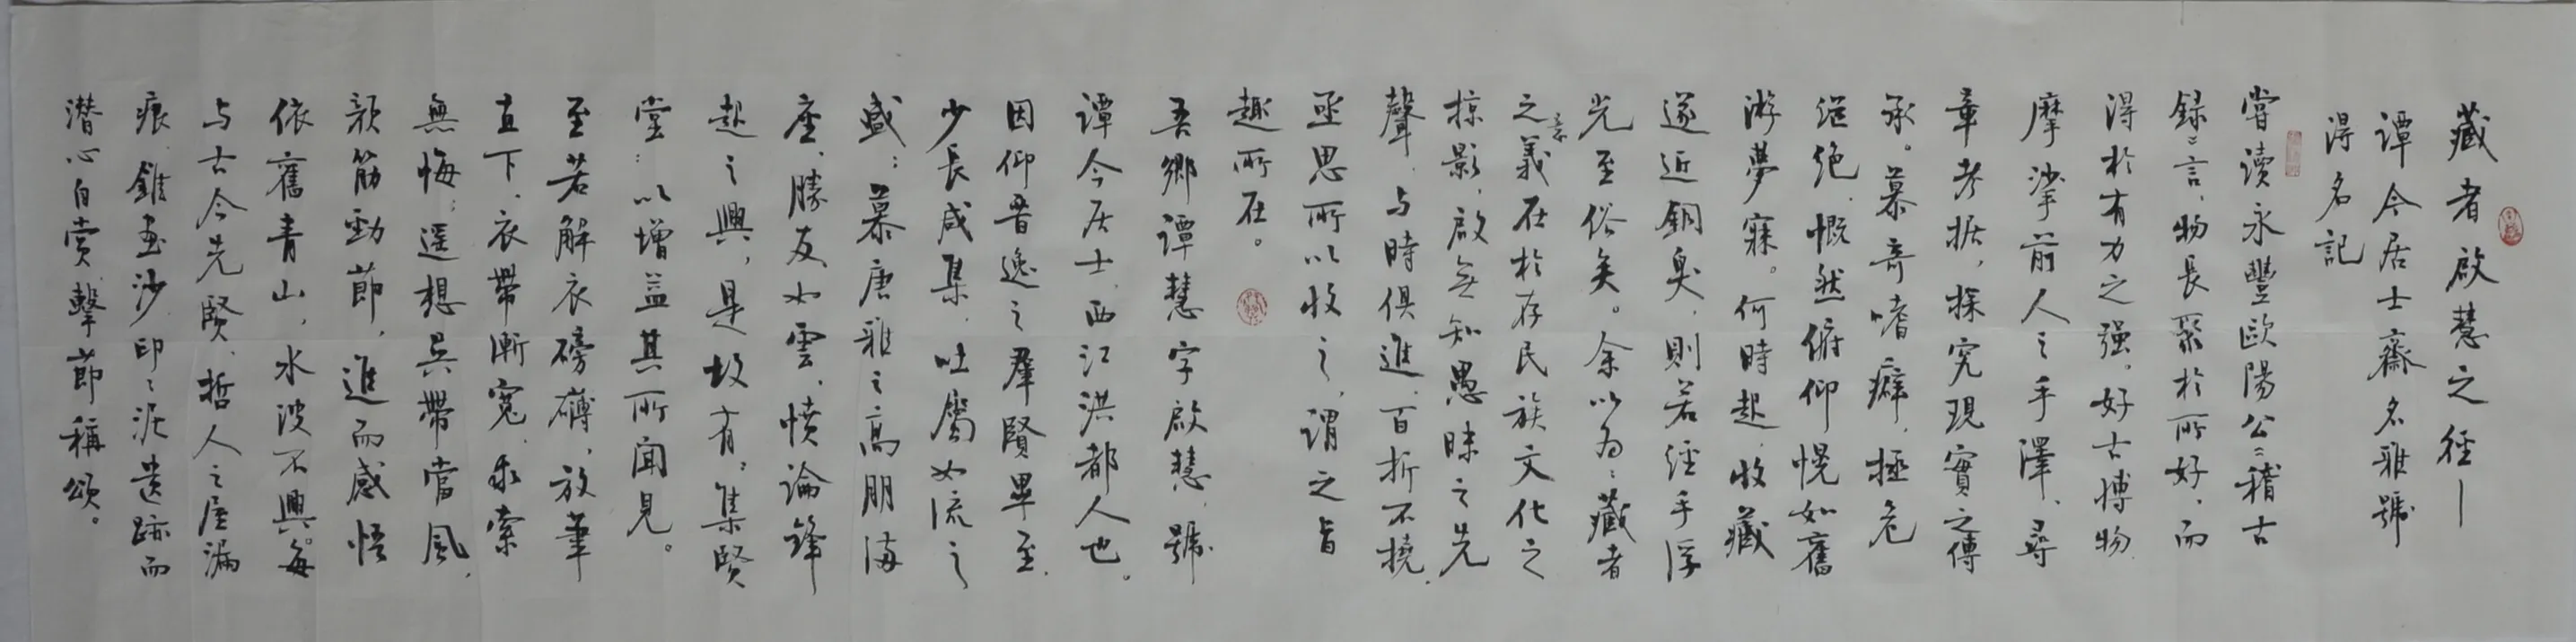 藏者啟慧之径—
谭今居士齋名雅號
得名記
嘗讀永豐歐陽公稽古
録言,物長聚於所好,而
得於有力之强。好古博物
摩挲前人之手澤、尋
章考据,探究現實之傳
承。慕奇嗜癖,極危
继绝,慨然俯仰,恍如舊
游夢寐。何時起,收藏
遂近銅臭,則若经手浮
光至俗矣。余以为:藏者
之義在於存民族文化之
掠影,啟無知愚昧之先
聲,与時俱進,百折不撓,
亟思所以收之,謂之旨
趣所在。
吾鄉谭慧字啟慧,號
谭今居士,西江洪都人也。
因仰晋逸之羣賢畢至,
少長咸集,吐屬如流之
盛;慕唐雅之高朋满
座、勝友如雲、愤論鋒
起之興,是故有:集賢
堂:以增益其所闻見。
至若解衣磅礴,放筆
直下,衣帶漸寬,求索
無悔;遥想吴帶當風,
颜筋勁節,進而感悟
依舊青山,水波不興。每
与古今先賢、哲人之屋漏
痕、錐画沙、印印泥遗跡而
潜心自赏,擊節稱颂。